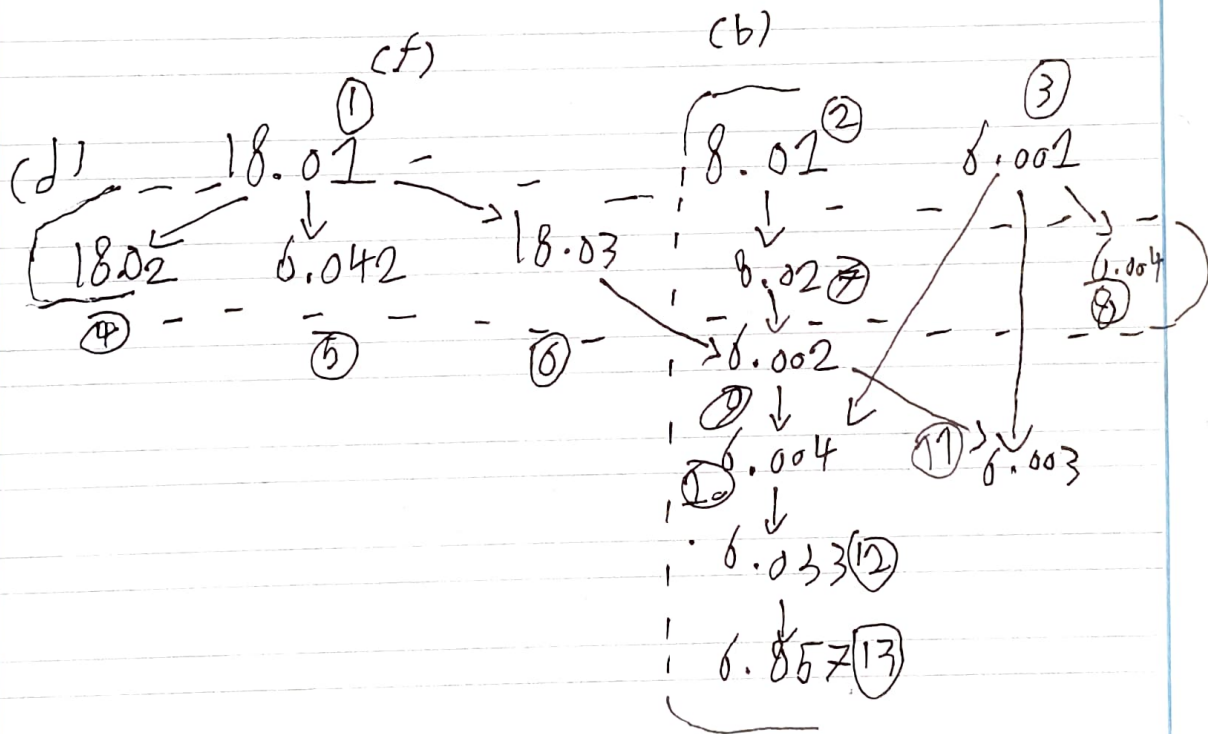 (b)
(f)
① ③
(d) 18.01 8.01 ② 6.001
18.02 6.042 18.03 8.02 ⑦ 6.004
④ ⑤ ⑥ ⑧
6.002
⑨
6.004 ⑪ 6.003
⑩
6.033 ⑫
6.857 ⑬